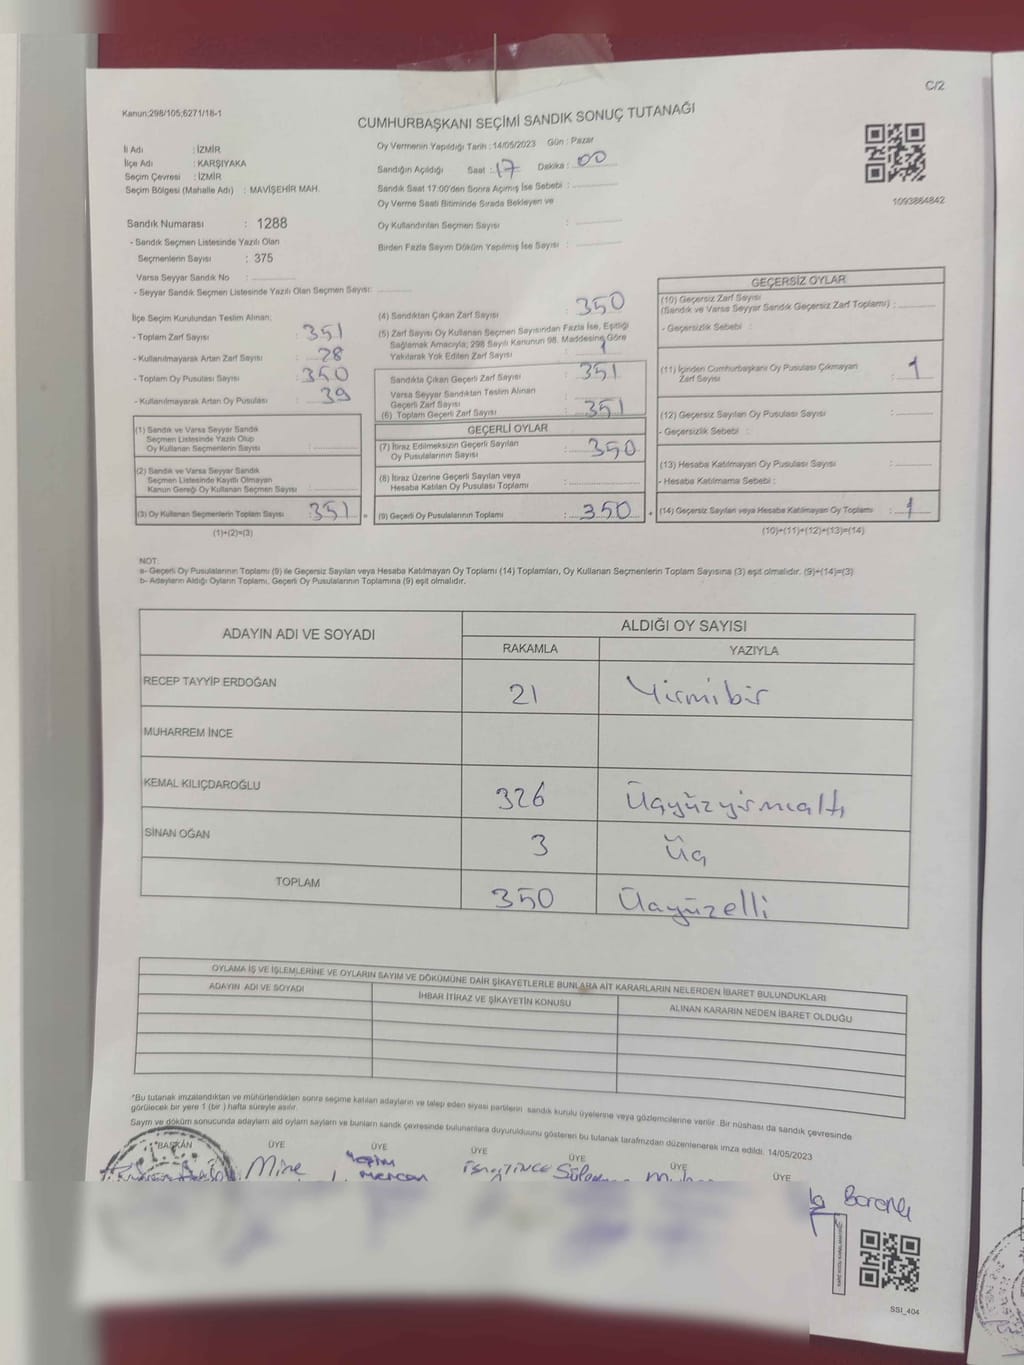 C/2
Kanun;298/105;6271/18-1
CUMHURBAŞKANI SEÇİMİ SANDIK SONUÇ TUTANAĞI
İl Adı : İZMİR
İlçe Adı : KARŞIYAKA
Seçim Çevresi : İZMİR
Seçim Bölgesi (Mahalle Adı) : MAVİŞEHİR MAH.
Oy Vermenin Yapıldığı Tarih : 14/05/2023 Gün : Pazar
Sandığın Açıldığı Saat : 17 Dakika : 00
Sandık Saat 17:00'den Sonra Açılmış İse Sebebi :
Oy Verme Saati Bitiminde Sırada Bekleyen ve
Oy Kullandırılan Seçmen Sayısı :
Birden Fazla Sayım Döküm Yapılmış İse Sayısı :
1093864842
Sandık Numarası : 1288
- Sandık Seçmen Listesinde Yazılı Olan
Seçmenlerin Sayısı : 375
Varsa Seyyar Sandık No :
- Seyyar Sandık Seçmen Listesinde Yazılı Olan Seçmen Sayısı:
İlçe Seçim Kurulundan Teslim Alınan;
- Toplam Zarf Sayısı : 351
- Kullanılmayarak Artan Zarf Sayısı : 28
- Toplam Oy Pusulası Sayısı : 350
- Kullanılmayarak Artan Oy Pusulası : 39
(1) Sandık ve Varsa Seyyar Sandık
Seçmen Listesinde Yazılı Olup
Oy Kullanan Seçmenlerin Sayısı :
(2) Sandık ve Varsa Seyyar Sandık
Seçmen Listesinde Kayıtlı Olmayan
Kanun Gereği Oy Kullanan Seçmen Sayısı :
(3) Oy Kullanan Seçmenlerin Toplam Sayısı : 351 =
(1)+(2)=(3)
(4) Sandıktan Çıkan Zarf Sayısı : 350
(5) Zarf Sayısı Oy Kullanan Seçmen Sayısından Fazla İse, Eşitliği
Sağlamak Amacıyla; 298 Sayılı Kanunun 98. Maddesine Göre
Yakılarak Yok Edilen Zarf Sayısı : 1
Sandıkta Çıkan Geçerli Zarf Sayısı : 351
Varsa Seyyar Sandıktan Teslim Alınan
Geçerli Zarf Sayısı :
(6) Toplam Geçerli Zarf Sayısı : 351
GEÇERLİ OYLAR
(7) İtiraz Edilmeksizin Geçerli Sayılan
Oy Pusulalarının Sayısı : 350
(8) İtiraz Üzerine Geçerli Sayılan veya
Hesaba Katılan Oy Pusulası Toplamı :
(9) Geçerli Oy Pusulalarının Toplamı : 350 +
GEÇERSİZ OYLAR
(10) Geçersiz Zarf Sayısı
(Sandık ve Varsa Seyyar Sandık Geçersiz Zarf Toplamı) :
- Geçersizlik Sebebi :
(11) İçinden Cumhurbaşkanı Oy Pusulası Çıkmayan
Zarf Sayısı : 1
(12) Geçersiz Sayılan Oy Pusulası Sayısı :
- Geçersizlik Sebebi :
(13) Hesaba Katılmayan Oy Pusulası Sayısı :
- Hesaba Katılmama Sebebi :
(14) Geçersiz Sayılan veya Hesaba Katılmayan Oy Toplamı : 1
(10)+(11)+(12)+(13)=(14)
NOT:
a- Geçerli Oy Pusulalarının Toplamı (9) ile Geçersiz Sayılan veya Hesaba Katılmayan Oy Toplamı (14) Toplamları, Oy Kullanan Seçmenlerin Toplam Sayısına (3) eşit olmalıdır. (9)+(14)=(3)
b- Adayların Aldığı Oyların Toplamı, Geçerli Oy Pusulalarının Toplamına (9) eşit olmalıdır.
ADAYIN ADI VE SOYADI
ALDIĞI OY SAYISI
RAKAMLA YAZIYLA
RECEP TAYYİP ERDOĞAN 21 Yirmibir
MUHARREM İNCE
KEMAL KILIÇDAROĞLU 326 Üçyüzyirmialtı
SİNAN OĞAN 3 Üç
TOPLAM 350 Üçyüzelli
OYLAMA İŞ VE İŞLEMLERİNE VE OYLARIN SAYIM VE DÖKÜMÜNE DAİR ŞİKAYETLERLE BUNLARA AİT KARARLARIN NELERDEN İBARET BULUNDUKLARI
ADAYIN ADI VE SOYADI İHBAR İTİRAZ VE ŞİKAYETİN KONUSU ALINAN KARARIN NEDEN İBARET OLDUĞU
*Bu tutanak imzalandıktan ve mühürlendikten sonra seçime katılan adayların ve talep eden siyasi partilerin sandık kurulu üyelerine veya gözlemcilerine verilir. Bir nüshası da sandık çevresinde
görülecek bir yere 1 (bir ) hafta süreyle asılır.
Sayım ve döküm sonucunda adayların ald oyların sayların ve bunların sandk çevresinde bulunanlara duyurulduunu gösteren bu tutanak tarafmzdan düzenlenerek imza edildi. 14/05/2023
BAŞKAN ÜYE ÜYE ÜYE ÜYE ÜYE ÜYE
Mine
Mercan
Baranlı
SSI_404